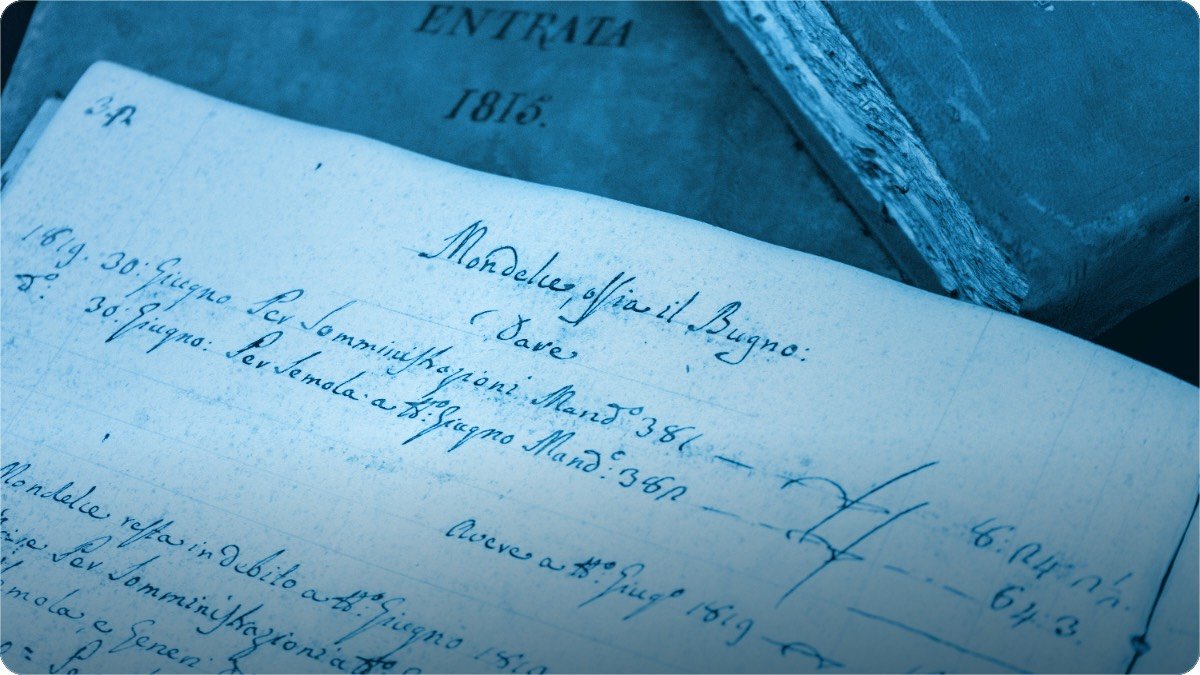 ENTRATA
1815.
Mondelce, ossia il Bugno:
Dave
1819. 30: Giugno Per Somministrazioni Mand.º 381
d.º 30. Giugno: Per Semola a tt.º Giugno Mand.º: 382
64: 3.
Avere a tt.º Giug.º 1819
Mondelce resta in debito a tt.º Giugno 1819
Per Somministrazioni a tt.º
Semola, e Generi